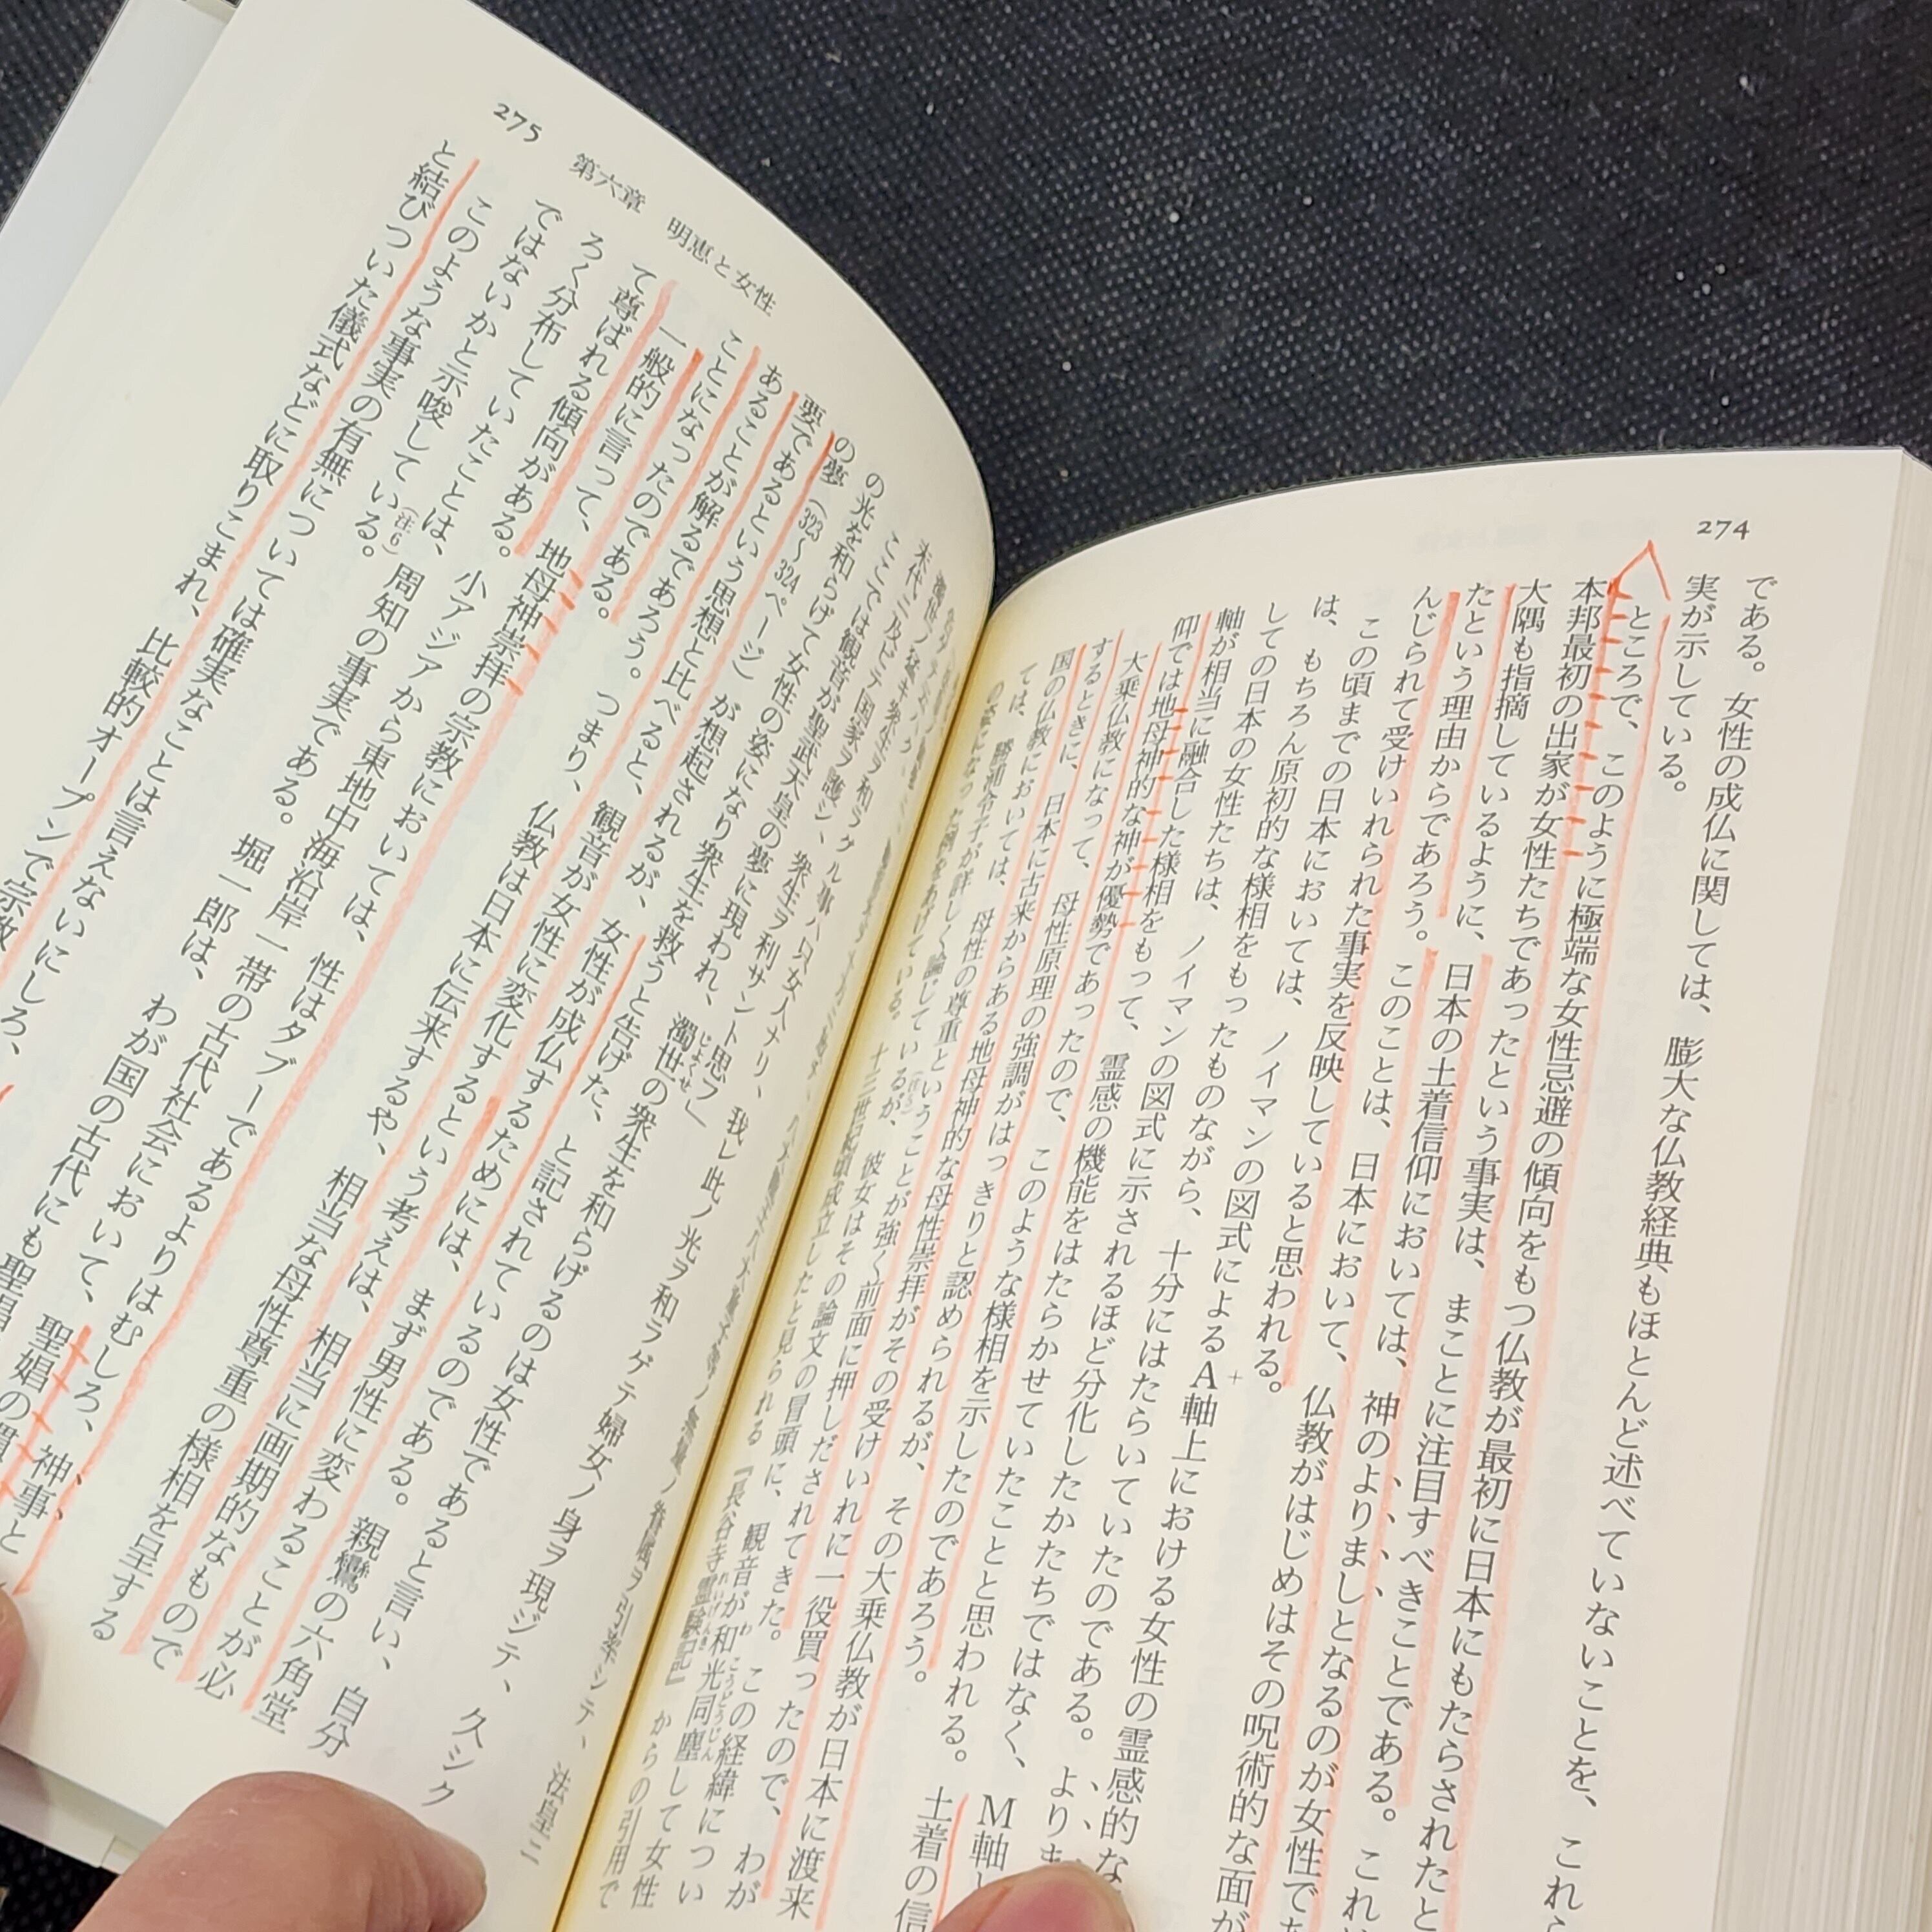 274
である。女性の成仏に関しては、膨大な仏教経典もほとんど述べていないことを、これ
実が示している。
ところで、このように極端な女性忌避の傾向をもつ仏教が最初に日本にもたらされたと
本邦最初の出家が女性たちであったという事実は、まことに注目すべきことである。これ
大隅も指摘しているように、日本の土着信仰においては、神のよりましとなるのが女性で
たという理由からであろう。このことは、日本において、仏教がはじめはその呪術的な面が
んじられて受けいれられた事実を反映していると思われる。
この頃までの日本においては、ノイマンの図式によるA+軸上における女性の霊感的な
は、もちろん原初的な様相をもったものながら、十分にはたらいていたのである。より
しての日本の女性たちは、ノイマンの図式に示されるほど分化したかたちではなく、M軸
軸が相当に融合した様相をもって、霊感の機能をはたらかせていたことと思われる。土着の信
仰では地母神的な神が優勢であったので、このような様相を示したのであろう。
大乗仏教になって、母性原理の強調がはっきりと認められるが、その大乗仏教が日本に渡来
するときに、日本に古来からある地母神的な母性崇拝がその受けいれに一役買ったので、わが
国の仏教においては、母性の尊重ということが強く前面に押しだされてきた。この経緯につい
ては、勝浦令子が詳しく論じているが、彼女はその論文の冒頭に、観音が和光同塵して女性
の姿になった例をあげている。十三世紀頃成立したと見られる『長谷寺霊験記』からの引用で
275 第六章 明恵と女性
末代ニ及ビテ国家ヲ護シ、衆生ヲ利サント思フ」
ここでは観音が聖武天皇の夢に現われ、濁世の衆生を和らげるのは女性であると言い、自分
の光を和らげて女性の姿になり衆生を救うと告げた、と記されているのである。親鸞の六角堂
の夢（323〜324ページ）が想起されるが、女性が成仏するためには、まず男性に変わることが必
要であるという思想と比べると、観音が女性に変化するという考えは、相当に画期的なもので
あることが解るであろう。つまり、仏教は日本に伝来するや、相当な母性尊重の様相を呈する
ことになったのである。
一般的に言って、地母神崇拝の宗教においては、性はタブーであるよりはむしろ、神事と
て尊ばれる傾向がある。小アジアから東地中海沿岸一帯の古代社会において、聖娼の
ろく分布していたことは、周知の事実である。堀一郎は、わが国の古代にも聖娼
ではないかと示唆している。（注6）
このような事実の有無については確実なことは言えないにしろ、
と結びついた儀式などに取りこまれ、比較的オープンで宗教